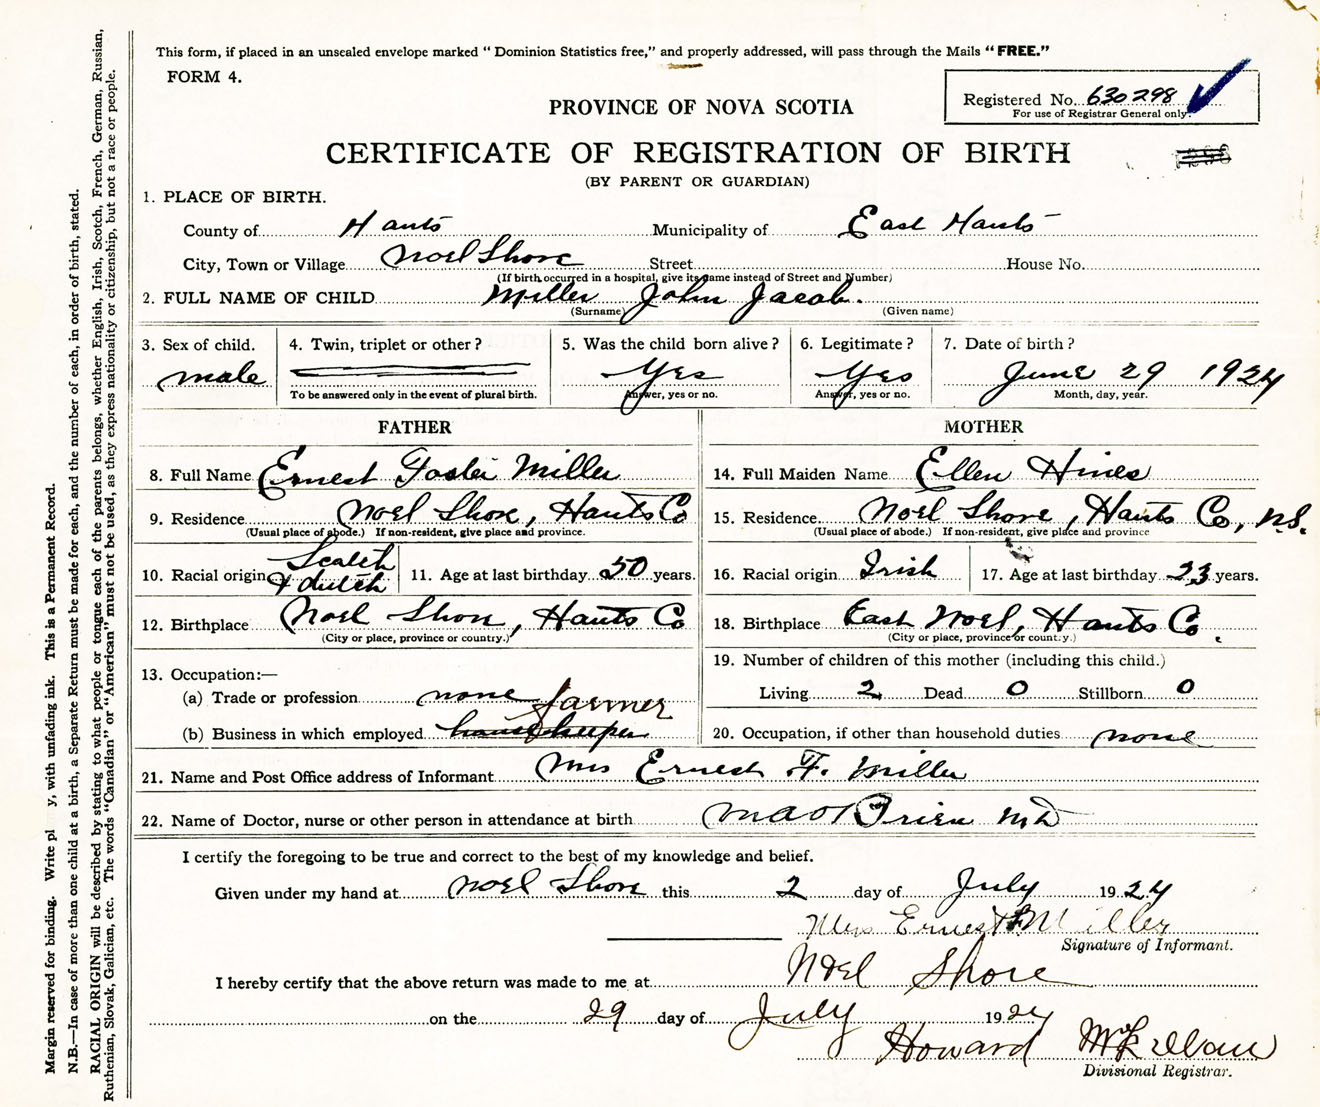 This form, if placed in an unsealed envelope marked " Dominion Statistics free," and properly addressed, will pass through the Mails " FREE."
FORM 4.
Registered No. 630298
For use of Registrar General only.
PROVINCE OF NOVA SCOTIA
CERTIFICATE OF REGISTRATION OF BIRTH
(BY PARENT OR GUARDIAN)
1. PLACE OF BIRTH.
County of Hants Municipality of East Hants
City, Town or Village Noel Shore Street House No.
(If birth occurred in a hospital, give its name instead of Street and Number)
2. FULL NAME OF CHILD Miller John Jacob.
(Surname) (Given name)
3. Sex of child. 4. Twin, triplet or other ? 5. Was the child born alive ? 6. Legitimate ? 7. Date of birth ?
male Yes Yes June 29 1924
To be answered only in the event of plural birth. Answer, yes or no. Answer, yes or no. Month, day, year.
FATHER MOTHER
8. Full Name Ernest Foster Miller 14. Full Maiden Name Ellen Hines
9. Residence Noel Shore, Hants Co 15. Residence Noel Shore, Hants Co, N.S.
(Usual place of abode.) If non-resident, give place and province. (Usual place of abode.) If non-resident, give place and province
10. Racial origin Scotch & dutch 11. Age at last birthday 50 years. 16. Racial origin Irish 17. Age at last birthday 23 years.
12. Birthplace Noel Shore, Hants Co 18. Birthplace East Noel, Hants Co.
(City or place, province or country.) (City or place, province or country.)
13. Occupation:— 19. Number of children of this mother (including this child.)
(a) Trade or profession none farmer Living 2 Dead 0 Stillborn 0
(b) Business in which employed housekeeper 20. Occupation, if other than household duties none
21. Name and Post Office address of Informant Mrs Ernest F. Miller
22. Name of Doctor, nurse or other person in attendance at birth O'Brien MD
I certify the foregoing to be true and correct to the best of my knowledge and belief.
Given under my hand at Noel Shore this 2 day of July 1924
Mrs Ernest F Miller
Signature of Informant.
I hereby certify that the above return was made to me at Noel Shore
on the 29 day of July 1924
Howard
Divisional Registrar.
Margin reserved for binding. Write pl y, with unfading ink. This is a Permanent Record.
N.B.—In case of more than one child at a birth, a Separate Return must be made for each, and the number of each, in order of birth, stated.
RACIAL ORIGIN will be described by stating to what people or tongue each of the parents belongs, whether English, Irish, Scotch, French, German, Russian,
Ruthenian, Slovak, Galician, etc. The words "Canadian" or "American" must not be used, as they express nationality or citizenship, but not a race or people.